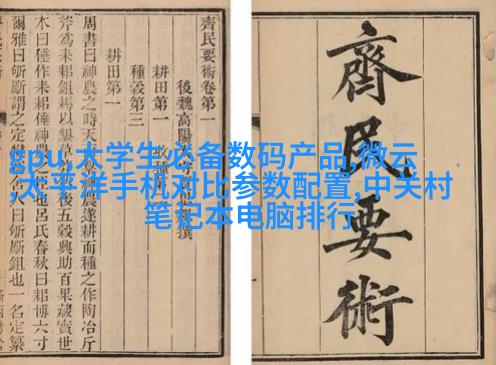 gpu,大学生必备数码产品,微云
,太平洋手机对比参数配置,中关村
笔记本电脑排行
齊民要術
齊民要術卷第一
後魏高陽 撰
耕田第一
種穀第三
耕田第一
周書曰神農之時天 農遂耕而種之作陶冶斤
斧爲耒耜鉏耨以墾草 後五穀興助百果藏實世
本曰倕作耒耜倕神農之臣也呂氏春秋曰耜博六寸
爾雅曰斪斸謂之定 人曰斪斸鉏也一名定纂